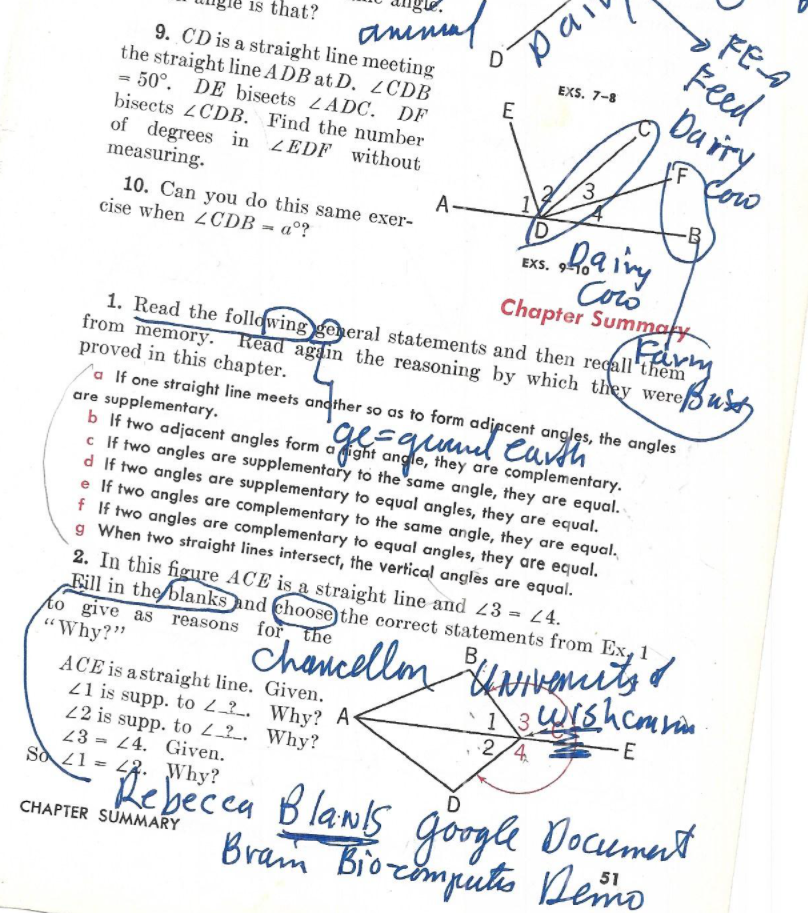 angle is that?
angle.
animal
9. CD is a straight line meeting
the straight line ADB at D. ∠CDB
= 50°. DE bisects ∠ADC. DF
bisects ∠CDB. Find the number
of degrees in ∠EDF without
measuring.
10. Can you do this same exer-
cise when ∠CDB = a°?
D
Dairy
FE
Feed
Dairy
Cow
EXS. 7–8
E
C
F
A
1 2 3 4
D
B
EXS. 9–10
Dairy
Cow
Chapter Summary
1. Read the following general statements and then recall them
from memory. Read again the reasoning by which they were
proved in this chapter.
Farm
a If one straight line meets another so as to form adjacent angles, the angles
are supplementary.
b If two adjacent angles form a right angle, they are complementary.
c If two angles are supplementary to the same angle, they are equal.
d If two angles are supplementary to equal angles, they are equal.
e If two angles are complementary to the same angle, they are equal.
f If two angles are complementary to equal angles, they are equal.
g When two straight lines intersect, the vertical angles are equal.
ge=guund Earth
2. In this figure ACE is a straight line and ∠3 = ∠4.
Fill in the blanks and choose the correct statements from Ex. 1
to give as reasons for the
“Why?”
Chancellor
ACE is a straight line. Given.
∠1 is supp. to ∠ ? . Why?
∠2 is supp. to ∠ ? . Why?
∠3 = ∠4. Given.
So ∠1 = ∠2. Why?
B
A
1 3
2 4
E
D
Rebecca Blanks Google Document
CHAPTER SUMMARY
Brain Bio-computer Demo
51